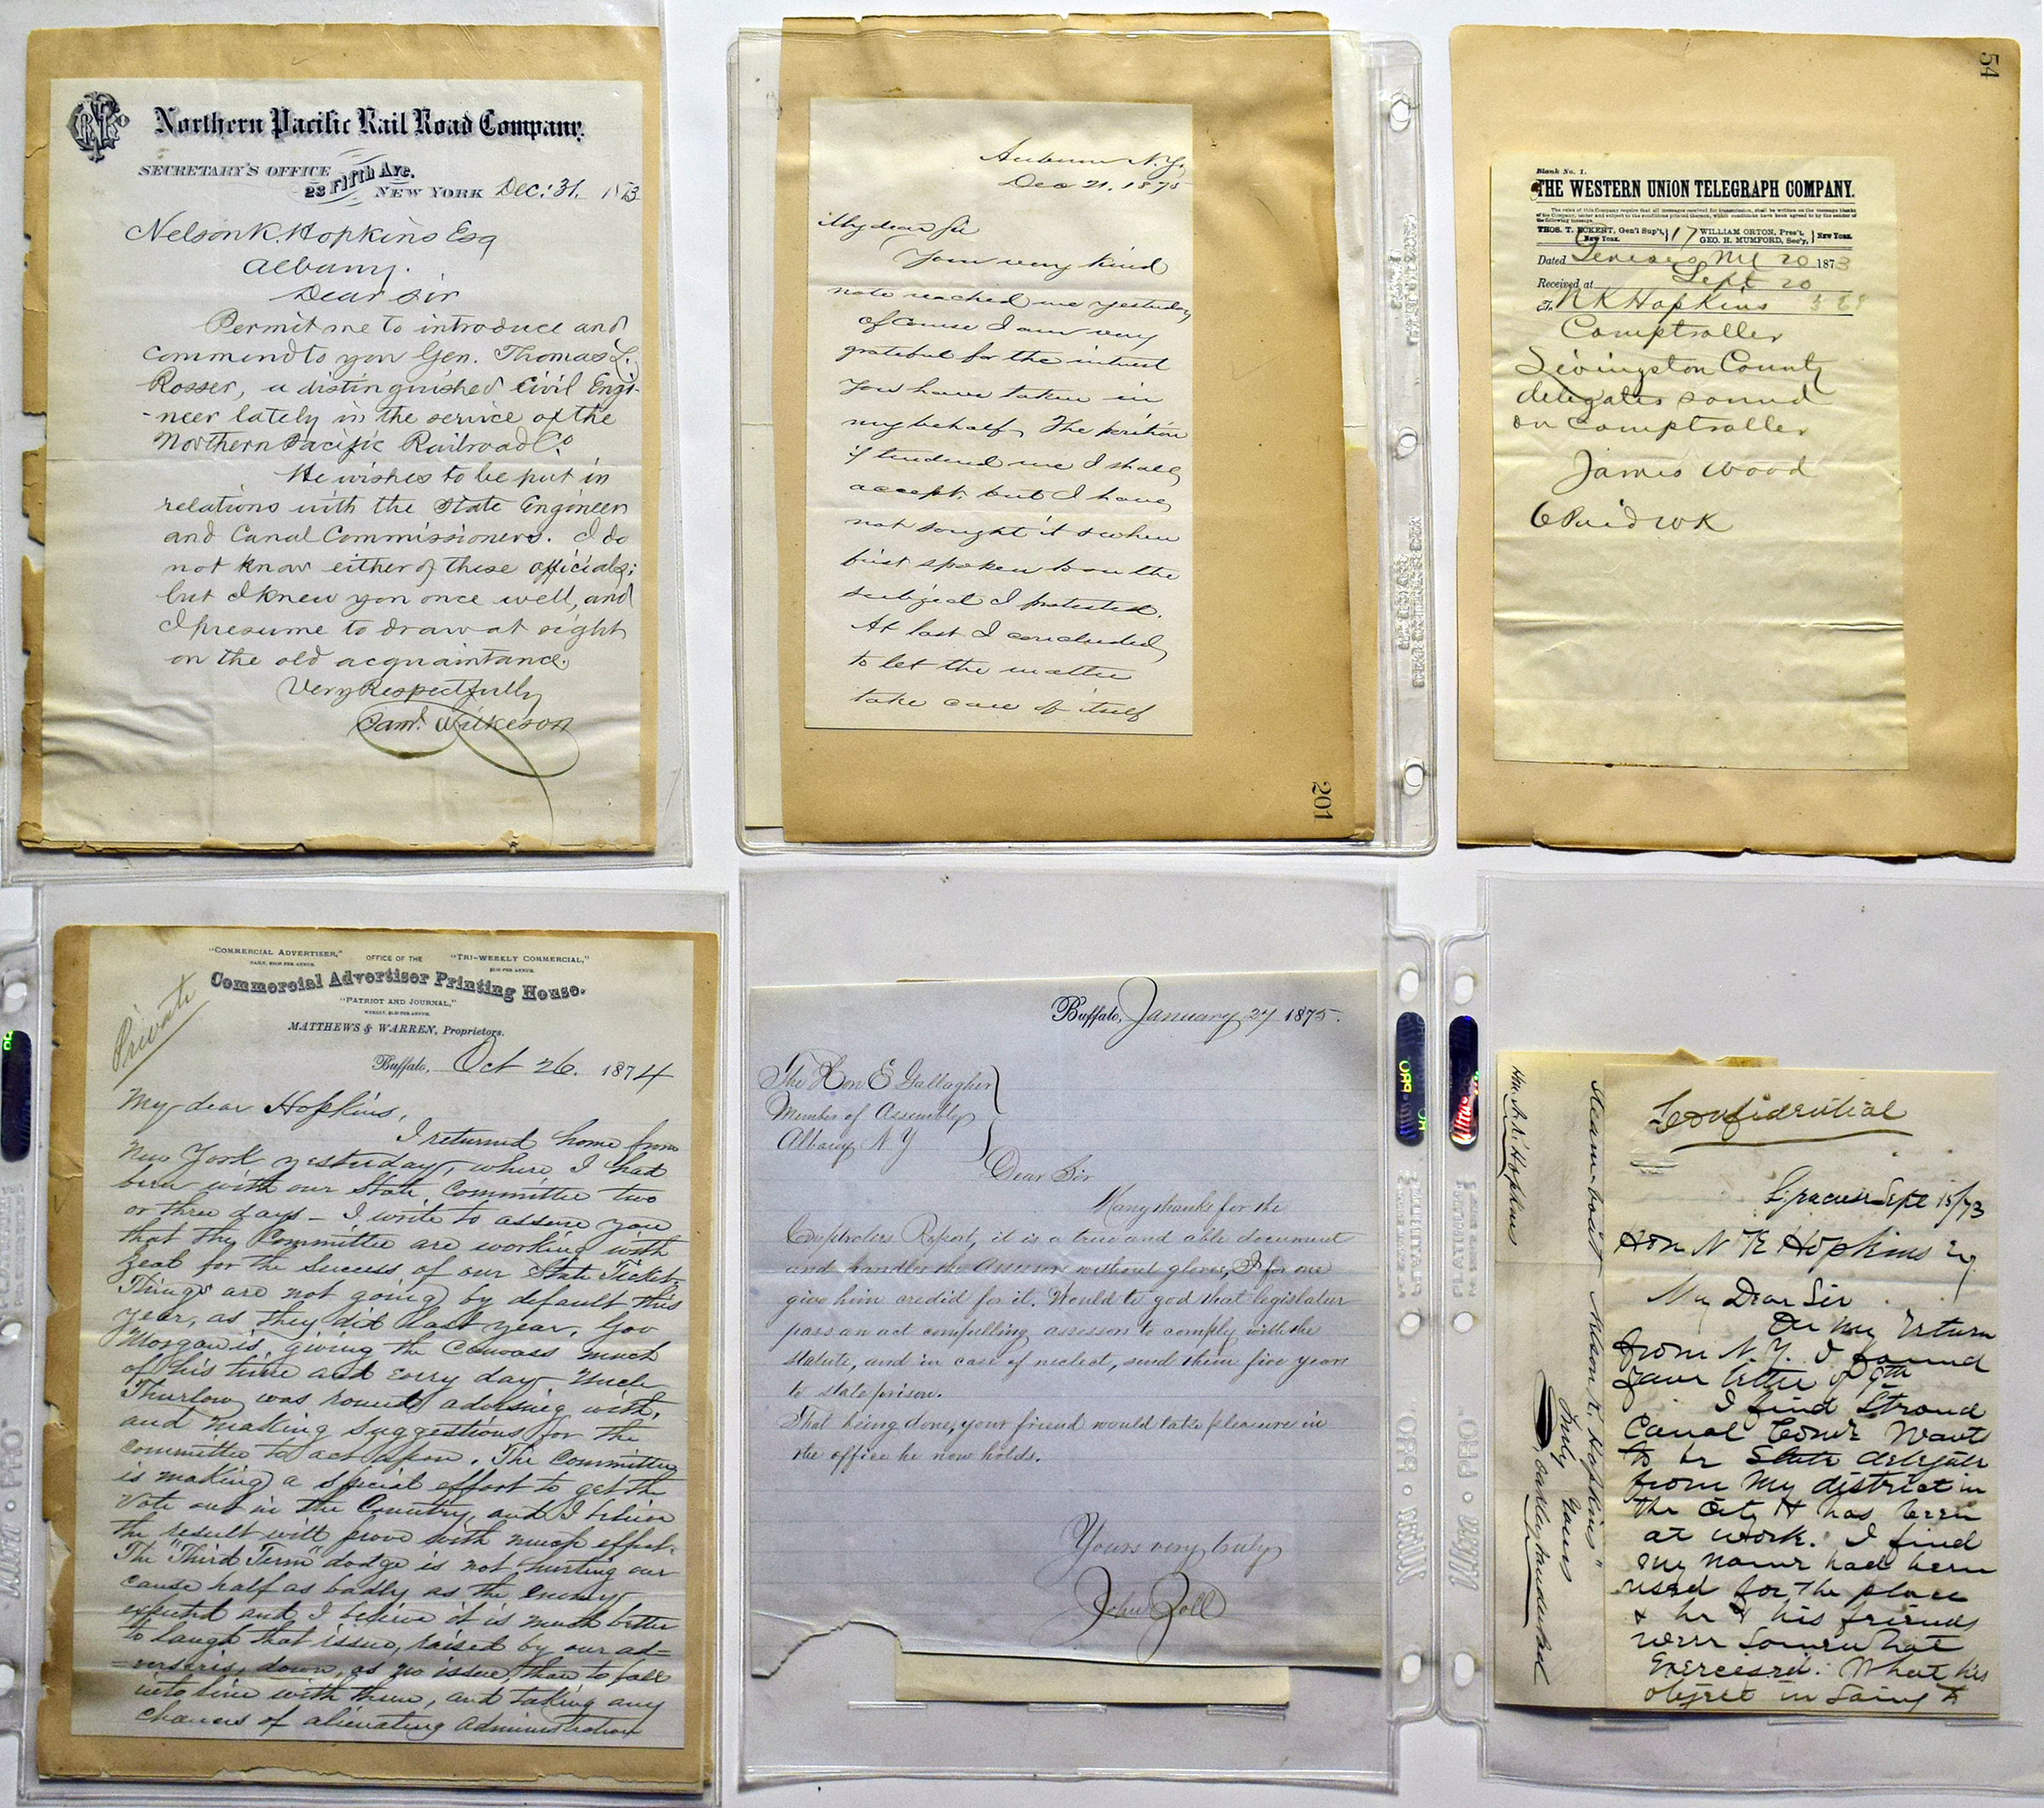 Northern Pacific Rail Road Company.
SECRETARY'S OFFICE
23 Fifth Ave.
NEW YORK Dec: 31. 1873
Nelson K. Hopkins Esq
Albany.
Dear Sir
Permit me to introduce and
commend to you Gen. Thomas L.
Rosser, a distinguished Civil Engi-
-neer lately in the service of the
Northern Pacific Railroad Co.
He wishes to be put in
relations with the State Engineer
and Canal Commissioners. I do
not know either of these officials;
but I knew you once well, and
I presume to draw at sight
on the old acquaintance.
Very Respectfully
Saml. Wilkeson
Auburn N.Y.
Dec 21. 1875
My dear Sir
Your very kind
note reached me yesterday
Of course I am very
grateful for the interest
you have taken in
my behalf. The position
if tendered me I shall
accept, but I have
not sought it & when
first spoken to on the
subject I protested.
At last I concluded
to let the matter
take care of itself
201
54
Blank No. 1.
THE WESTERN UNION TELEGRAPH COMPANY.
The rules of this Company require that all messages received for transmission, shall be written on the message blanks
of the Company, under and subject to the conditions printed thereon, which conditions have been agreed to by the sender of
the following message.
THOS. T. ECKERT, Gen'l Sup't, New York. 17 WILLIAM ORTON, Pres't, GEO. H. MUMFORD, Sec'y, New York.
Dated Geneseo NY 20 1873
Received at Sept 20
To N K Hopkins
Comptroller
Livingston County
delegates sound
on Comptroller
James Wood
6 Paid WK
Private
"COMMERCIAL ADVERTISER," OFFICE OF THE "TRI-WEEKLY COMMERCIAL,"
Commercial Advertiser Printing House.
"PATRIOT AND JOURNAL,"
MATTHEWS & WARREN, Proprietors.
Buffalo, Oct 26. 1874
My dear Hopkins,
I returned home from
New York yesterday, where I had
been with our State Committee two
or three days – I write to assure you
that the Committee are working with
zeal for the success of our State Ticket.
Things are not going by default this
year, as they did last year. Gov
Morgan is giving the Canvass much
of his time and every day
Thurlow was round advising with,
and making suggestions for the
committee to act upon. The Committee
is making a special effort to get the
vote out in the Country, and I believe
the result will prove with much effect.
The "Third Term" dodge is not hurting our
cause half as badly as the enemy
expected and I believe it is much better
to laugh that issue, raised by our ad-
-versaries, down, as no issue, than to fall
into line with them, and taking any
chances of alienating administration
Buffalo, January 27 1875.
The Hon E Gallagher
Member of Assembly
Albany N Y
Dear Sir
Many thanks for the
Comptrolers Report, it is a true and able document
and handles the Assessors without gloves, I for one
give him credid for it. Would to god that legislatur
pass an act compelling assessors to comply with the
statute, and in case of neglect, send them five years
to state prison.
That being done, your friend would take pleasure in
the office he now holds.
Yours very truly
John Zoll
Hon. N. K. Hopkins
Steam-boat "Nelson K. Hopkins"
Truly Yours
Confidential
Syracuse Sept 15/73
Hon N K Hopkins Esq
My Dear Sir
On my return
from N. Y. I found
your letter of 9th
I find Stroud
Canal Comr. wants
to be State delegate
from my district in
the City. H has been
at work. I find
my name had been
used for the place
& he & his friends
were somewhat
exercised. What his
object in